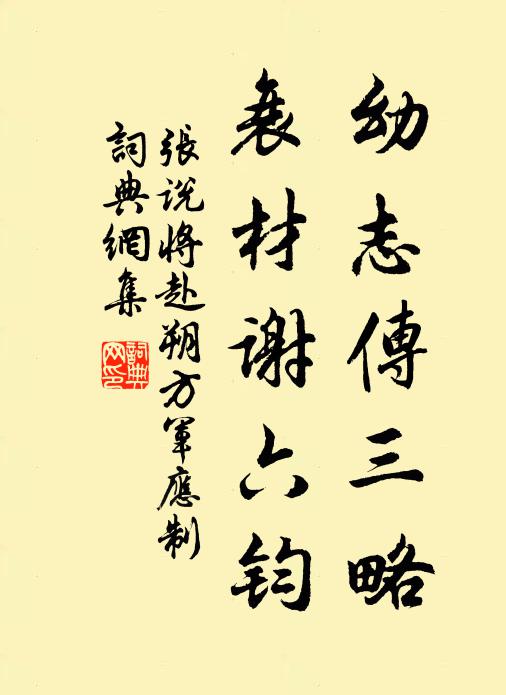 幼志傳三略
衰材謝六鈞
張説將赴朔方軍應制
詞典網集
詞典
网印